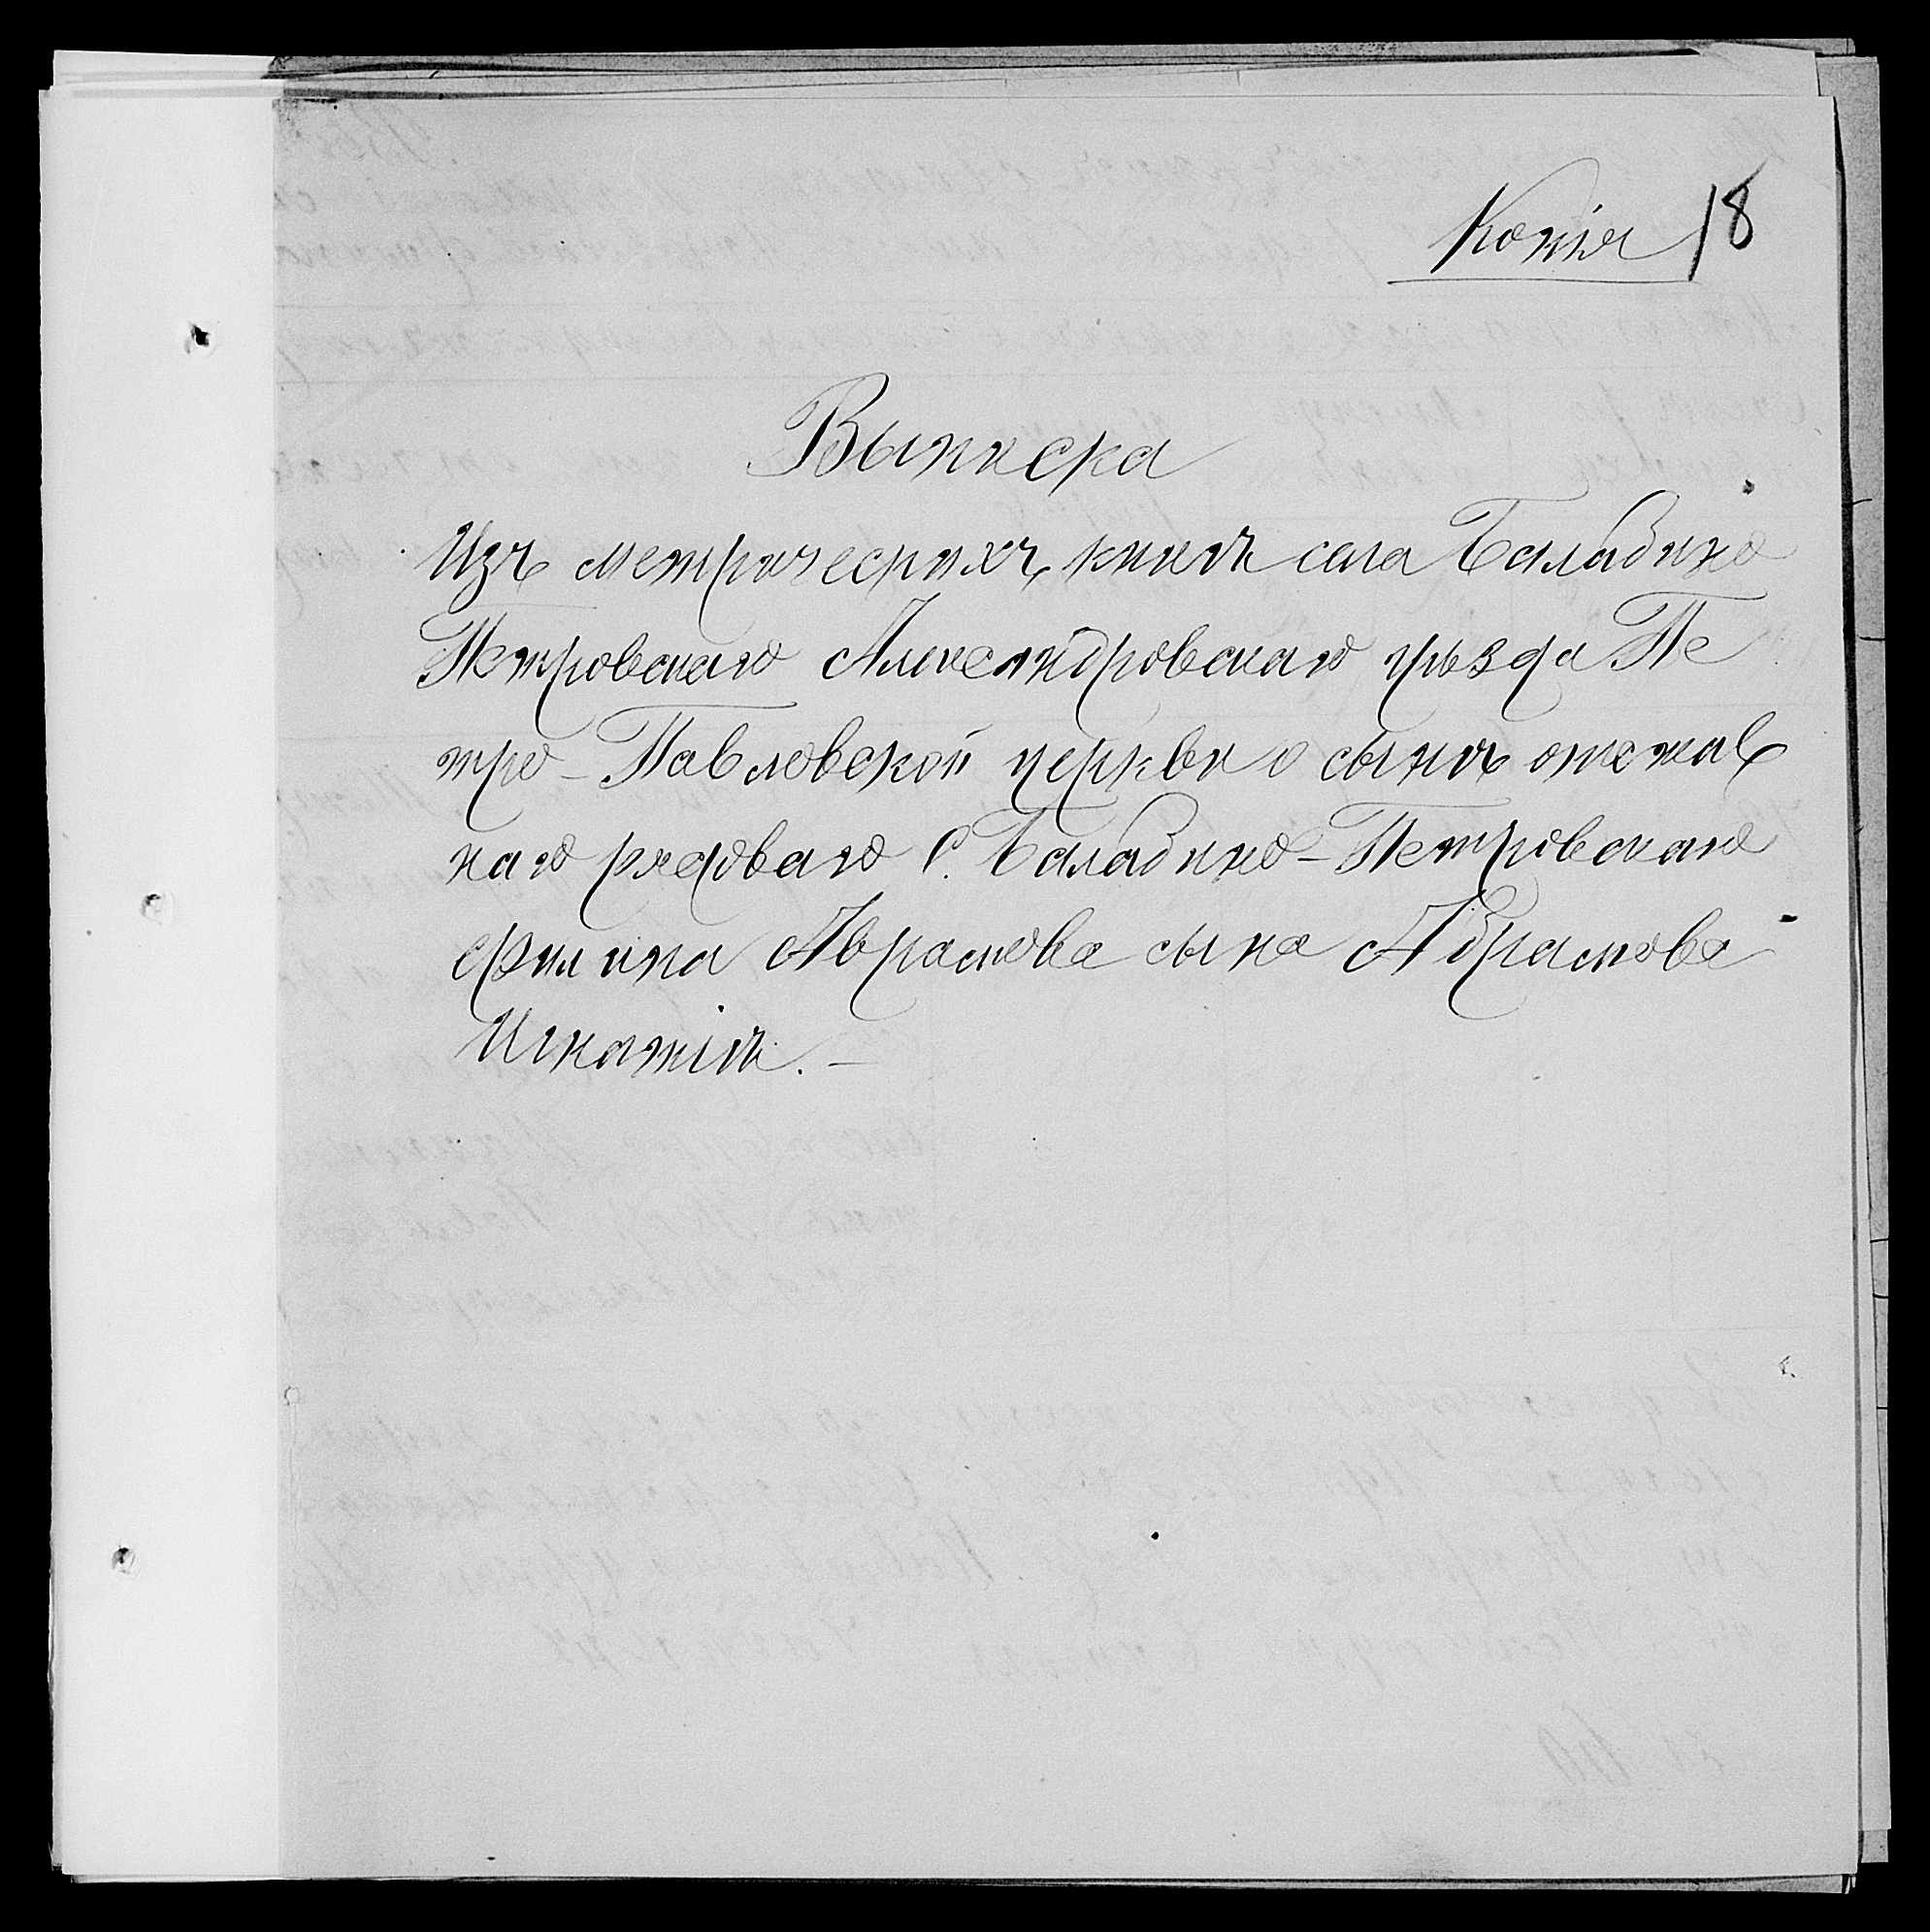 Копія 18
Выписка
Изъ метрическихъ книгъ села Балабино
Петровскаго Александровскаго уѣзда Пе
тро-Павловской церкви о сынѣ отстав
наго рядоваго С. Балабино-Петровскаго
Филипа Абрамова сына Абрамова
Игнатіѣ. –